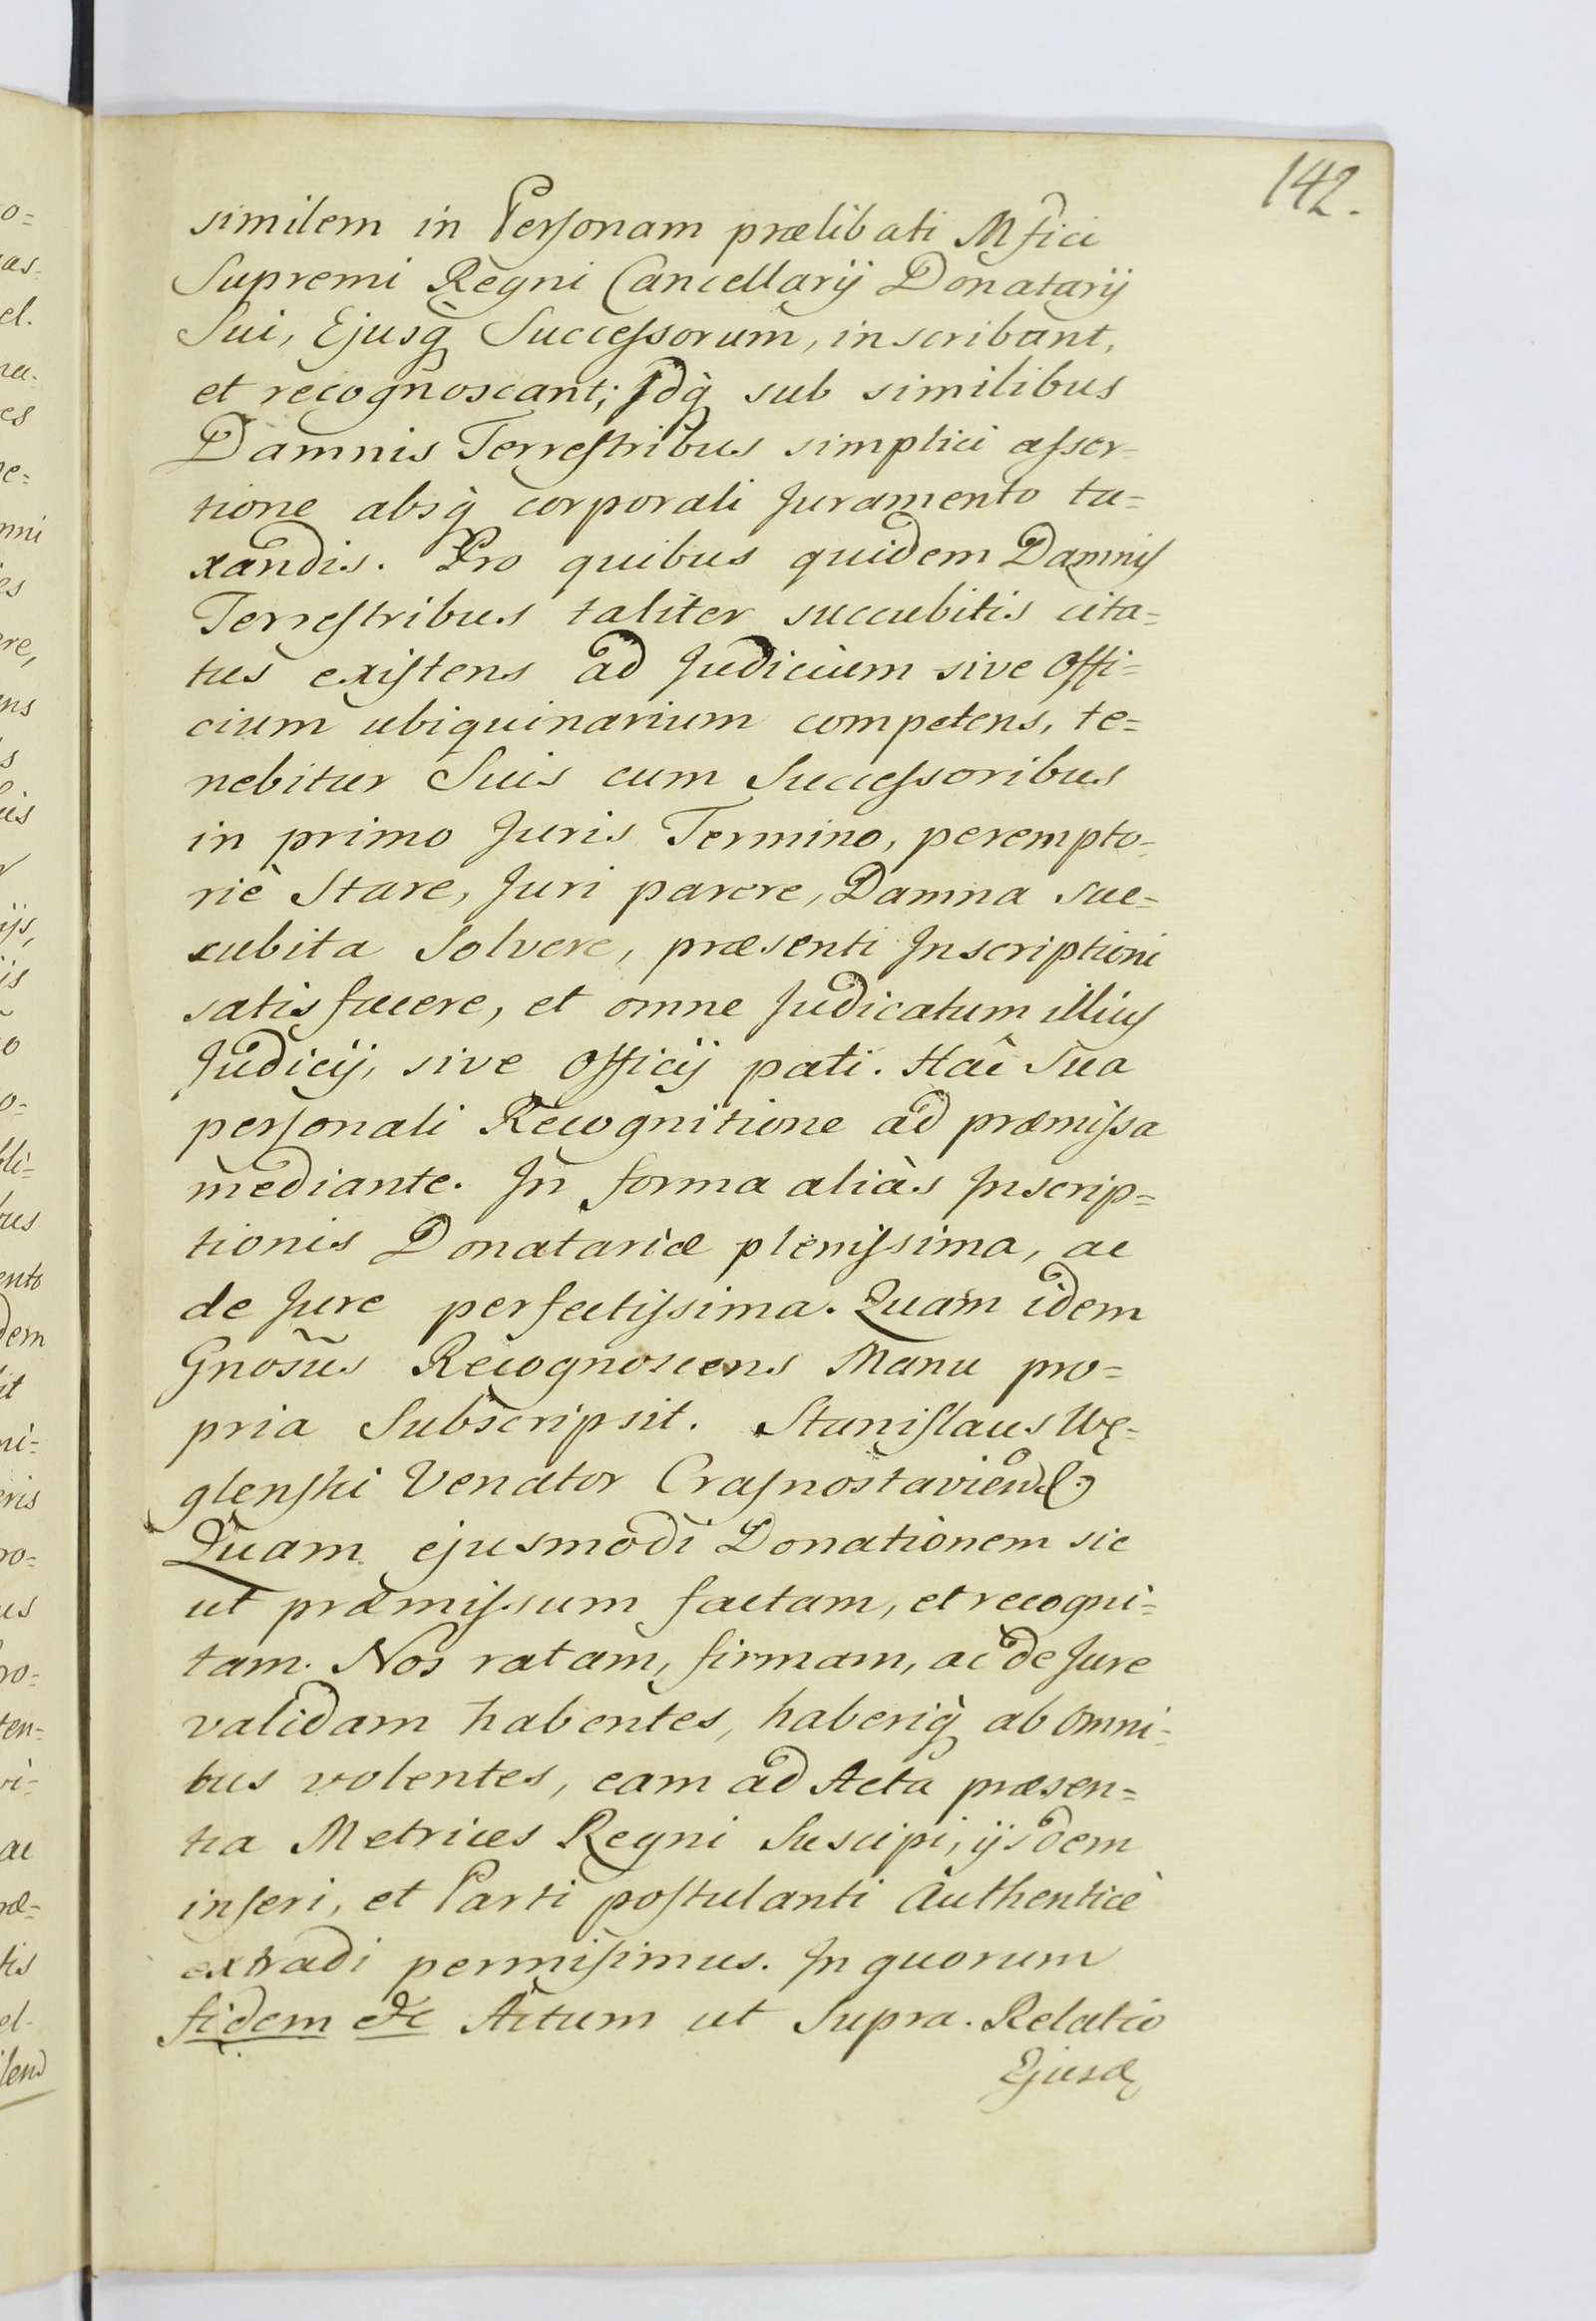 142.
similem in Perſonam prælibati Mfici
Supremi Regni Cancellarij Donatarij
Sui, Ejusq̀ Succeſsorum, inscribant,
et recognoscant; Idq̀ sub similibus
Damnis Terreſtribus simplici aſser-
tione absq̀ corporali Juramento ta=
xandis. Pro quibus quidem Damnis
Terreſtribus taliter succubitis cita=
tus exiſtens ad Judicium sive Offi=
cium ubiquinarium competens, te=
nebitur Suis cum Succeſsoribus
in primo Juris Termino, perempto-
riè Stare, Juri parere, Damna suc=
cubita Solvere, præsenti Inscriptioni
satisfacere, et omne Judicatum illius
Judicij, sive Officij pati. Hac Sua
perſonali Recognitione ad præmiſsa
mediante. In forma aliàs Inscrip=
tionis Donatariæ pleniſsima, ac
de Jure perfectiſsima. Quam idem
Gnosus Recognoscens Manu pro=
pria Subscripsit. Staniſlaus Wę=
glenſki Venator Craſnostavien
Quam ejusmodi Donationem sic
ut præmiſsum factam, et recogni=
tam. Nos ratam, firmam, ac de Jure
validam habentes, haberiq̀ ab omni=
bus volentes, eam ad Acta præsen=
tia Metrices Regni Suscipi, ijsdem
inſeri, et Parti poſtulanti Authenticè
extradi permiſimus. In quorum
fidem &c Actum ut Supra. Relatio
Ejusd